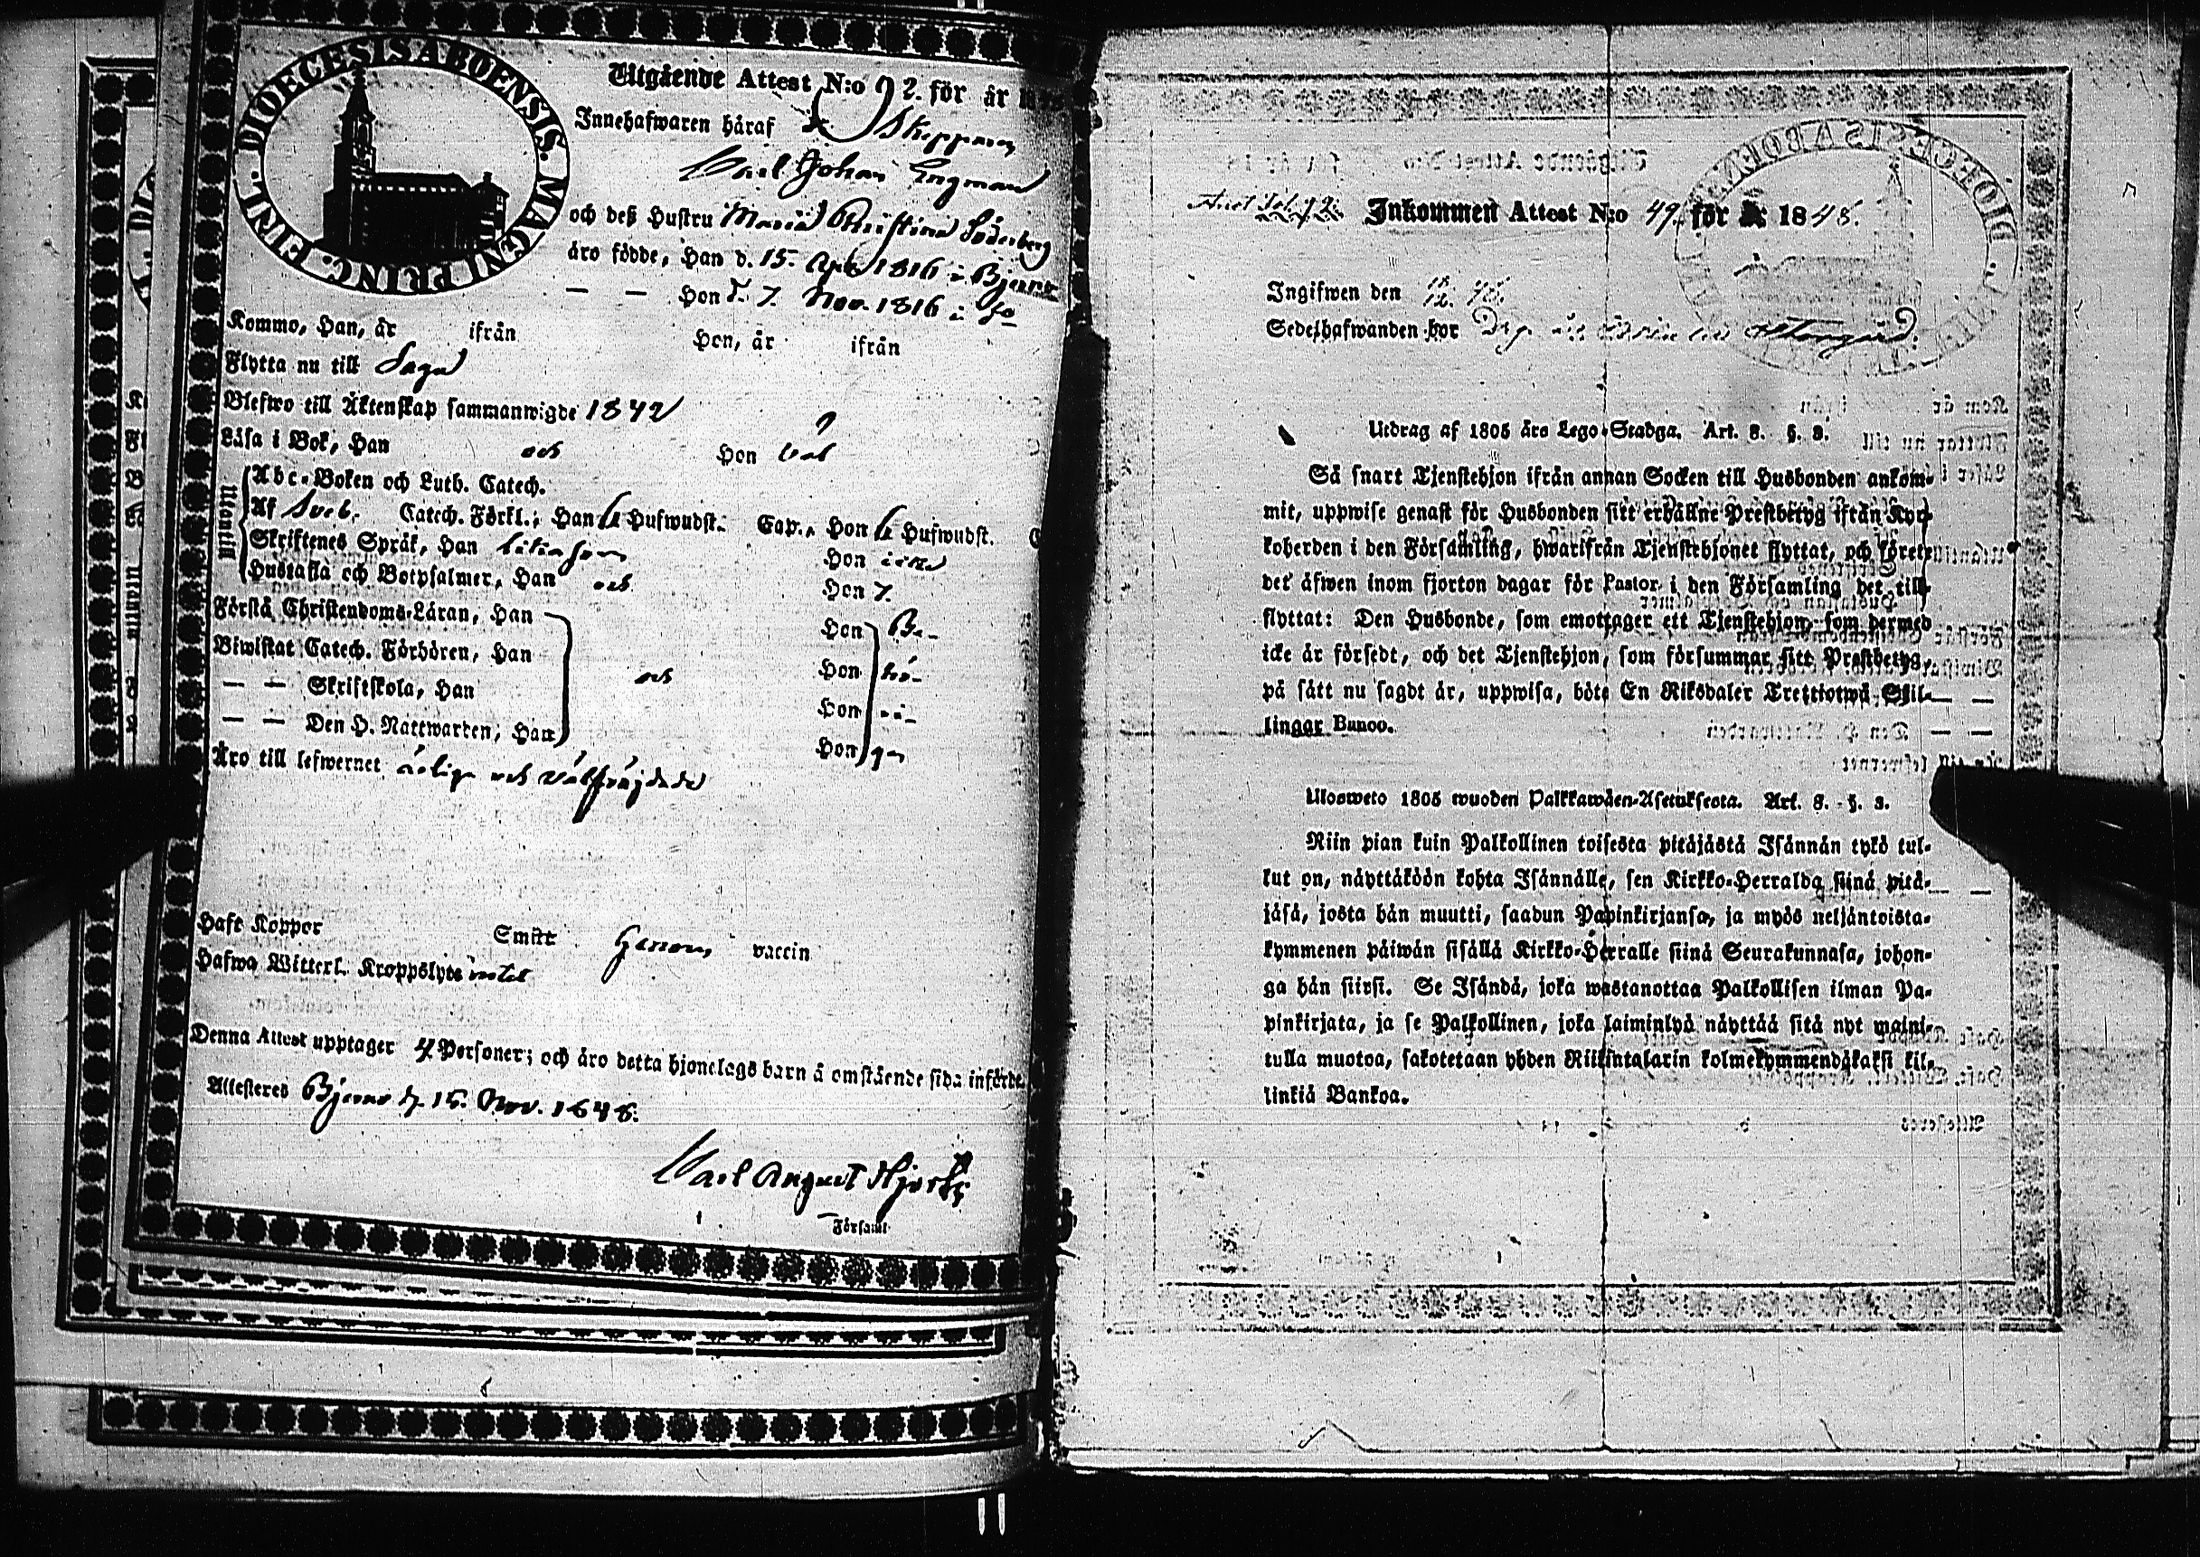 DIOECESIS ABOENSIS. MAGNI PRINC. FINL.
Utgående Attest N:o 92. för år
Innehafwaren häraf Skepparen
Carl Johan Engman
och deß Hustru Maria Christina Söderberg
äro födde, Han d. 15. Apr. 1816 i Bjerno
— — Hon d. 7. Nov. 1816 i
Kommo, Han, år ifrån Hon, år ifrån
Flytta nu till Sagu
Blefwo till Äktenskap sammanwigde 1842
Läsa i Bok, Han och Hon väl
Utantill
Abc-Boken och Luth. Catech.
Af Sveb. Catech. Förkl.; Han 6 Hufwudst. Cap., Hon 6 Hufwudst.
Skriftenes Språk, Han Hon
Hustafla och Botpsalmer, Han och Hon
Förstå Christendoms-Läran, Han Hon Be-
Biwistat Catech. Förhören, Han och Hon
— — Skriftskola, Han Hon
— — Den H. Nattwarden, Han Hon
Äro till lefwernet ärlige och välfräjdade
Haft Koppor Smitt Genom vaccin
Hafwa Witterl. Kroppslyte intet
Denna Attest upptager 4 Personer; och äro detta hjonelags barn å omstående sida införde.
Attesteras Bjerno d. 15. Nov. 1848.
Carl August Hjorth
Församl
Inkommen Attest N:o 49. för år 1848.
Ingifwen den
Sedelhafwanden bor
Utdrag af 1805 års Lego-Stadga. Art. 8. §. 3.
Så snart Tjenstehjon ifrån annan Socken till Husbonden ankom-
mit, uppwise genast för Husbonden sitt erhållne Prestbetyg ifrån Kyr-
koherden i den Församling, hwarifrån Tjenstehjonet flyttat, och förete
det äfwen inom fjorton dagar för Pastor i den Församling det till-
flyttat: Den Husbonde, som emottager ett Tjenstehjon, som dermed
icke är försedt, och det Tjenstehjon, som försummar sitt Prestbetyg,
på sätt nu sagdt är, uppwisa, böte En Riksdaler Trettiotwå Skil-
lingar Banco.
Ulosweto 1805 wuoden Palkkawäen-Asetuksesta. Art. 8. §. 3.
Niin pian kuin Palkollinen toisesta pitäjästä Isännän tykö tul-
lut on, näyttäköön kohta Isännälle, sen Kirkko-Herralda siinä pitä-
jäsä, josta hän muutti, saadun Papinkirjansa, ja myös neljäntoista-
kymmenen päiwän sisällä Kirkko-Herralle siinä Seurakunnasa, johon-
ga hän siirsi. Se Isändä, joka wastanottaa Palkollisen ilman Pa-
pinkirjata, ja se Palkollinen, joka laiminlyö näyttää sitä nyt maini-
tulla muotoa, sakotetaan yhden Riikintalarin kolmekymmendäkaksi kil-
linkiä Bankoa.